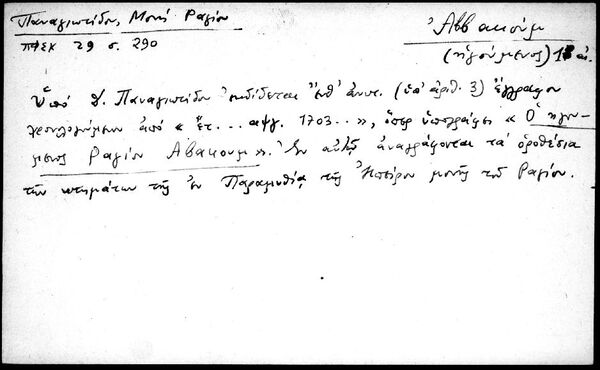 Παναγιωτίδου, Μονή Ραγίου
ΠΦΣΚ 29 σ. 290
Ἀββακούμ
(ἡγούμενος) 18 αἰ.
Ὑπό Δ. Παναγιωτίδου ἐκδίδεται ἐνθ' ἀνωτ. (ὑπ' ἀριθ. 3) ἔγγραφον
χρονολογούμενον ἀπό « ἔτ... αψγ. 1703.. », ὅπερ ὑπογράφει « Ὁ ἡγού-
μενος Ραγίου Αβακουμ ». Ἐν αὐτῷ ἀναγράφονται τά ὁροθέσια
τῶν κτημάτων τῆς ἐν Παραμυθίᾳ τῆς Ἠπείρου μονῆς τοῦ Ραγίου.